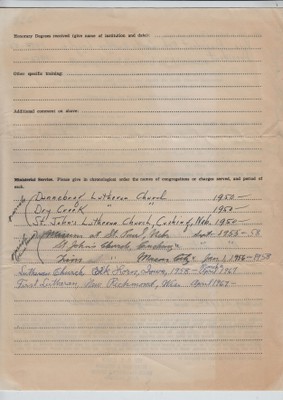 Honorary Degrees received (give name of institution and date):
Other specific training:
Additional comment on above:
Ministerial Service. Please give in chronological order the names of congregations or charges served, and period of each.
Dannebrog Lutheran Church 1950-
Dry Creek " 1950-
St. John's Lutheran Church, Cushing, Neb. 1950-
at St. Paul, Neb. Sept. 1955-58
St. John's Church, Cushing " " "
Zion " Jan 1, 1956-1958
Lutheran Church Elk Horn, Iowa, 1958- April 1967
First Lutheran, New Richmond, Wis. April 1967-